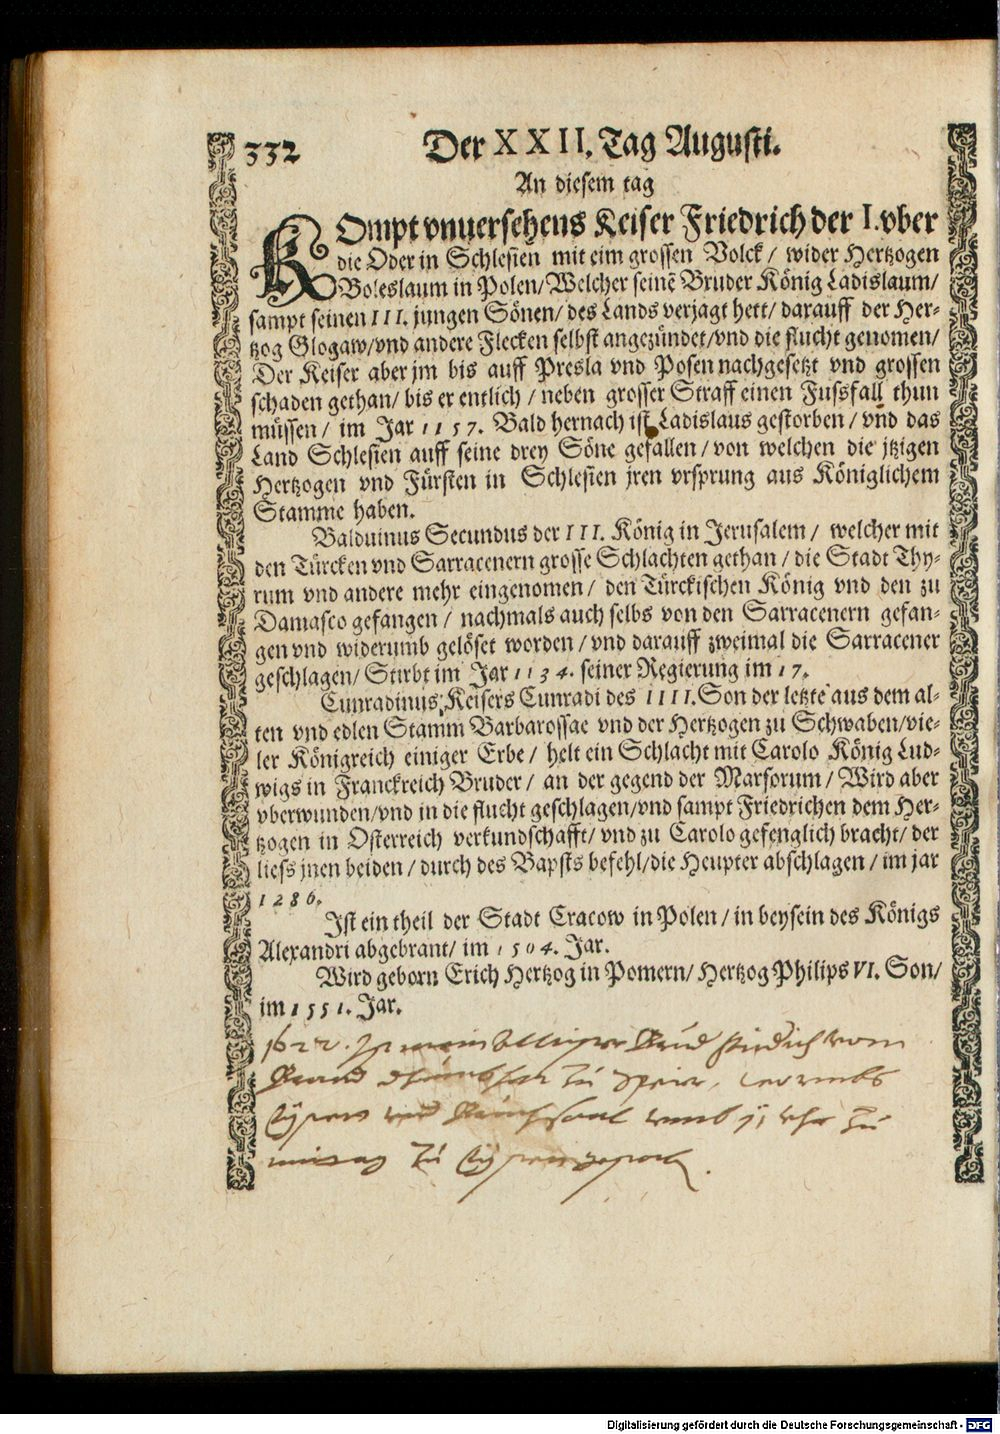 332
Der XXII. Tag Augusti.
An diesem tag
KOmpt vnuersehens Keiser Friedrich der I. vber
die Oder in Schlesien mit eim grossen Volck/ wider Hertzogen
Boleslaum in Polen/ Welcher seinē Bruder König Ladislaum/
sampt seinen III. jungen Sönen/ des Lands verjagt hett/ darauff der Her-
tzog Glogaw/ vnd andere Flecken selbst angezündet/ vnd die flucht genomen/
Der Keiser aber jm bis auff Presla vnd Posen nachgesetzt vnd grossen
schaden gethan/ bis er entlich/ neben grosser Straff einen Fussfall thun
müssen/ im Jar 1157. Bald hernach ist Ladislaus gestorben/ vnd das
Land Schlesien auff seine drey Söne gefallen/ von welchen die jtzigen
Hertzogen vnd Fürsten in Schlesien jren vrsprung aus Königlichem
Stamme haben.
Balduinus Secundus der III. König in Jerusalem/ welcher mit
den Türcken vnd Sarracenern grosse Schlachten gethan/ die Stadt Thy-
rum vnd andere mehr eingenomen/ den Türckischen König vnd den zu
Damasco gefangen/ nachmals auch selbs von den Sarracenern gefan-
gen vnd widerumb gelöset worden/ vnd darauff zweimal die Sarracener
geschlagen/ Stirbt im Jar 1134. seiner Regierung im 17.
Cunradinus, Keisers Cunradi des IIII. Son der letzte aus dem al-
ten vnd edlen Stamm Barbarossae vnd der Hertzogen zu Schwaben/ vie-
ler Königreich einiger Erbe/ helt ein Schlacht mit Carolo König Lud-
wigs in Franckreich Bruder/ an der gegend der Marsorum/ Wird aber
vberwunden/ vnd in die flucht geschlagen/ vnd sampt Friedrichen dem Her-
tzogen in Osterreich verkundschafft/ vnd zu Carolo gefenglich bracht/ der
liess jnen beiden/ durch des Bapsts befehl/ die Heupter abschlagen/ im jar
1286.
Ist ein theil der Stadt Cracow in Polen/ in beysein des Königs
Alexandri abgebrant/ im 1504. Jar.
Wird geborn Erich Hertzog in Pomern/ Hertzog Philips VI. Son/
im 1551. Jar.
1622.
zu
zu
zu
Digitalisierung gefördert durch die Deutsche Forschungsgemeinschaft - DFG